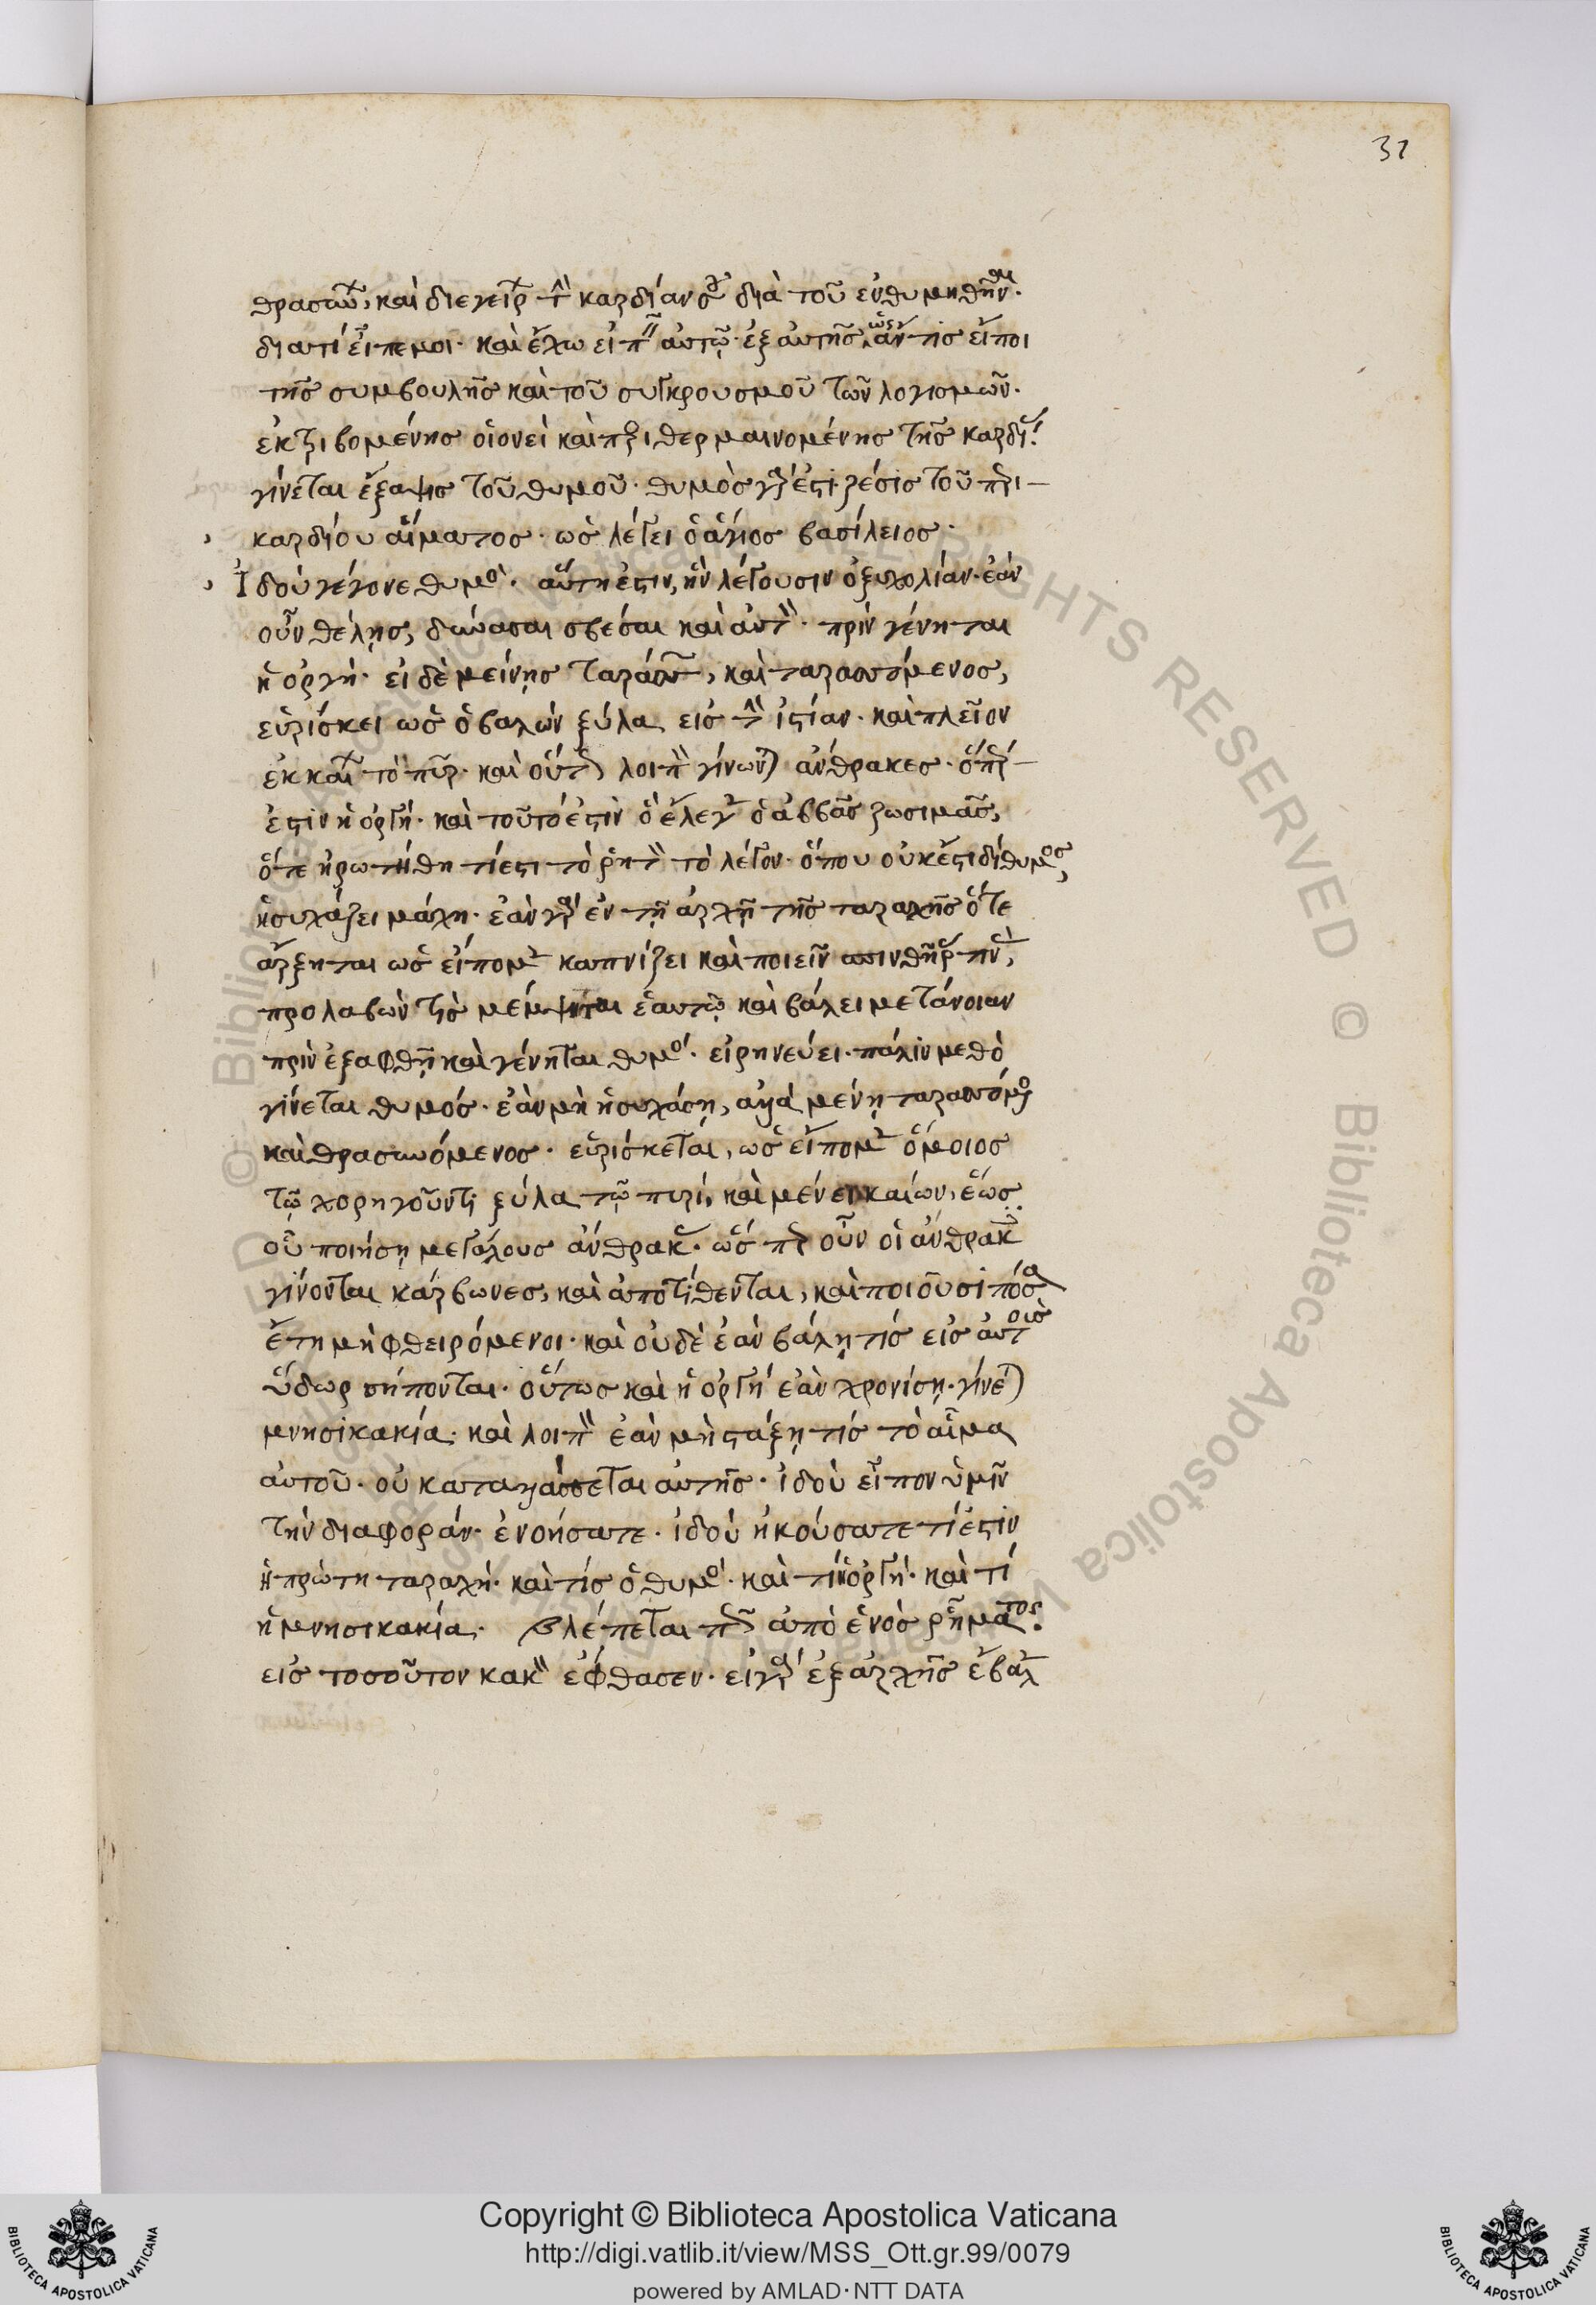 31
θρασύνεις, καὶ διεγείρεις τὴν καρδίαν σου διὰ τοῦ ἐνθυμηθῆναι.
διατί εἶπέ μοι. καὶ ἔχω εἰπεῖν αὐτῷ. ἐξ αὐτῆς ὡς ἄν τις εἴποι
τῆς συμβουλῆς καὶ τοῦ συγκρουσμοῦ τῶν λογισμῶν.
ἐκτριβομένης οἱονεὶ καὶ περιθερμαινομένης τῆς καρδίας.
γίνεται ἔξαψις τοῦ θυμοῦ. θυμὸς γάρ ἐστι ζέσις τοῦ περι
καρδίου αἵματος. ὡς λέγει ὁ ἅγιος βασίλειος.
Ἰδοὺ γέγονε θυμός. αὕτη ἐστιν, ἣν λέγουσιν ὀξυχολίαν. ἐὰν
οὖν θέλῃς, δύνασαι σβέσαι καὶ αὐτὴν. πρὶν γένηται
ἡ ὀργή. εἰ δὲ μείνῃς ταράττων, καὶ ταραττόμενος,
εὑρίσκει ὡς ὁ βαλὼν ξύλα εἰς τὴν ἱστίαν. καὶ πλεῖον
ἐκκαίεις τὸ πῦρ. καὶ οὕτως λοιπὸν γίνωνται ἄνθρακες. ὅπερ
ἐστὶν ἡ ὀργή. καὶ τοῦτό ἐστὶν ὃ ἔλεγεν ὁ ἀββᾶς ζωσιμᾶς,
ὅτε ἠρωτήθη τί ἐστι τὸ ῥητὸν τὸ λέγον. ὅπου οὐκ ἔστι δὴ θυμὸς,
ἡσυχάζει μάχη. ἐὰν γὰρ ἐν τῇ ἀρχῇ τῆς ταραχῆς ὅτε
ἄρξηται ὡς εἴπομεν καπνίζει καὶ ποιεῖν σπινθῆράς τινας,
προλαβών τὶς μέμψηται ἑαυτῷ καὶ βάλει μετάνοιαν
πρὶν ἐξαφθῇ καὶ γένηται θυμός. εἰρηνεύει. πάλιν μεθὸ
γίνεται θυμός. ἐὰν μὴ ἡσυχάσῃ, ἀλλὰ μένῃ ταραττόμενος
καὶ θρασυνόμενος. εὑρίσκεται, ὡς εἴπομεν ὅμοιος
τῷ χορηγοῦντι ξύλα τῷ πυρί, καὶ μένει καίων, ἕως
οὗ ποιήσῃ μεγάλους ἄνθρακας. ὥσπερ οὖν οἱ ἄνθρακες
γίνονται κάρβωνες, καὶ ἀποτίθενται, καὶ ποιοῦσι πόσα
ἔτη μὴ φθειρόμενοι. καὶ οὐδὲ ἐὰν βάλῃ τίς εἰς αὐτοὺς
ὕδωρ σήπονται. οὕτως καὶ ἡ ὀργή ἐὰν χρονίσῃ. γίνεται
μνησικακία. καὶ λοιπὸν ἐὰν μὴ στάξῃ τίς τὸ αἷμα
αὐτοῦ. οὐ καταλλάσσεται αὐτῆς. ἰδοὺ εἶπον ὑμῖν
τὴν διαφοράν. ἐνοήσατε. ἰδοὺ ἠκούσατε τί ἐστὶν
ἡ πρώτη ταραχή. καὶ τίς ὁ θυμός. καὶ τί ἡ ὀργή. καὶ τί
ἡ μνησικακία. βλέπεται πῶς ἀπὸ ἑνὸς ῥήματος.
εἰς τοσοῦτον κακὸν ἔφθασεν. εἰ γὰρ ἐξ ἀρχῆς ἔβαλε
Copyright © Biblioteca Apostolica Vaticana
http://digi.vatlib.it/view/MSS_Ott.gr.99/0079
powered by AMLAD·NTT DATA